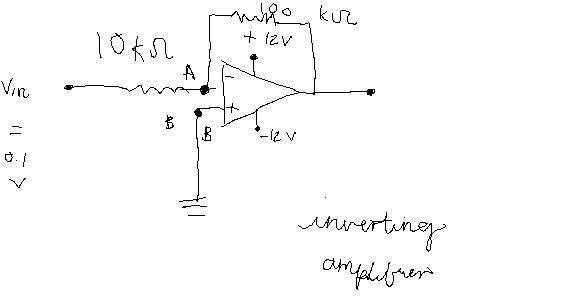 100 kΩ
10kΩ
+ 12V
A
-
Vin
+
B B
=
-12V
0.1
V
inverting
amplifier